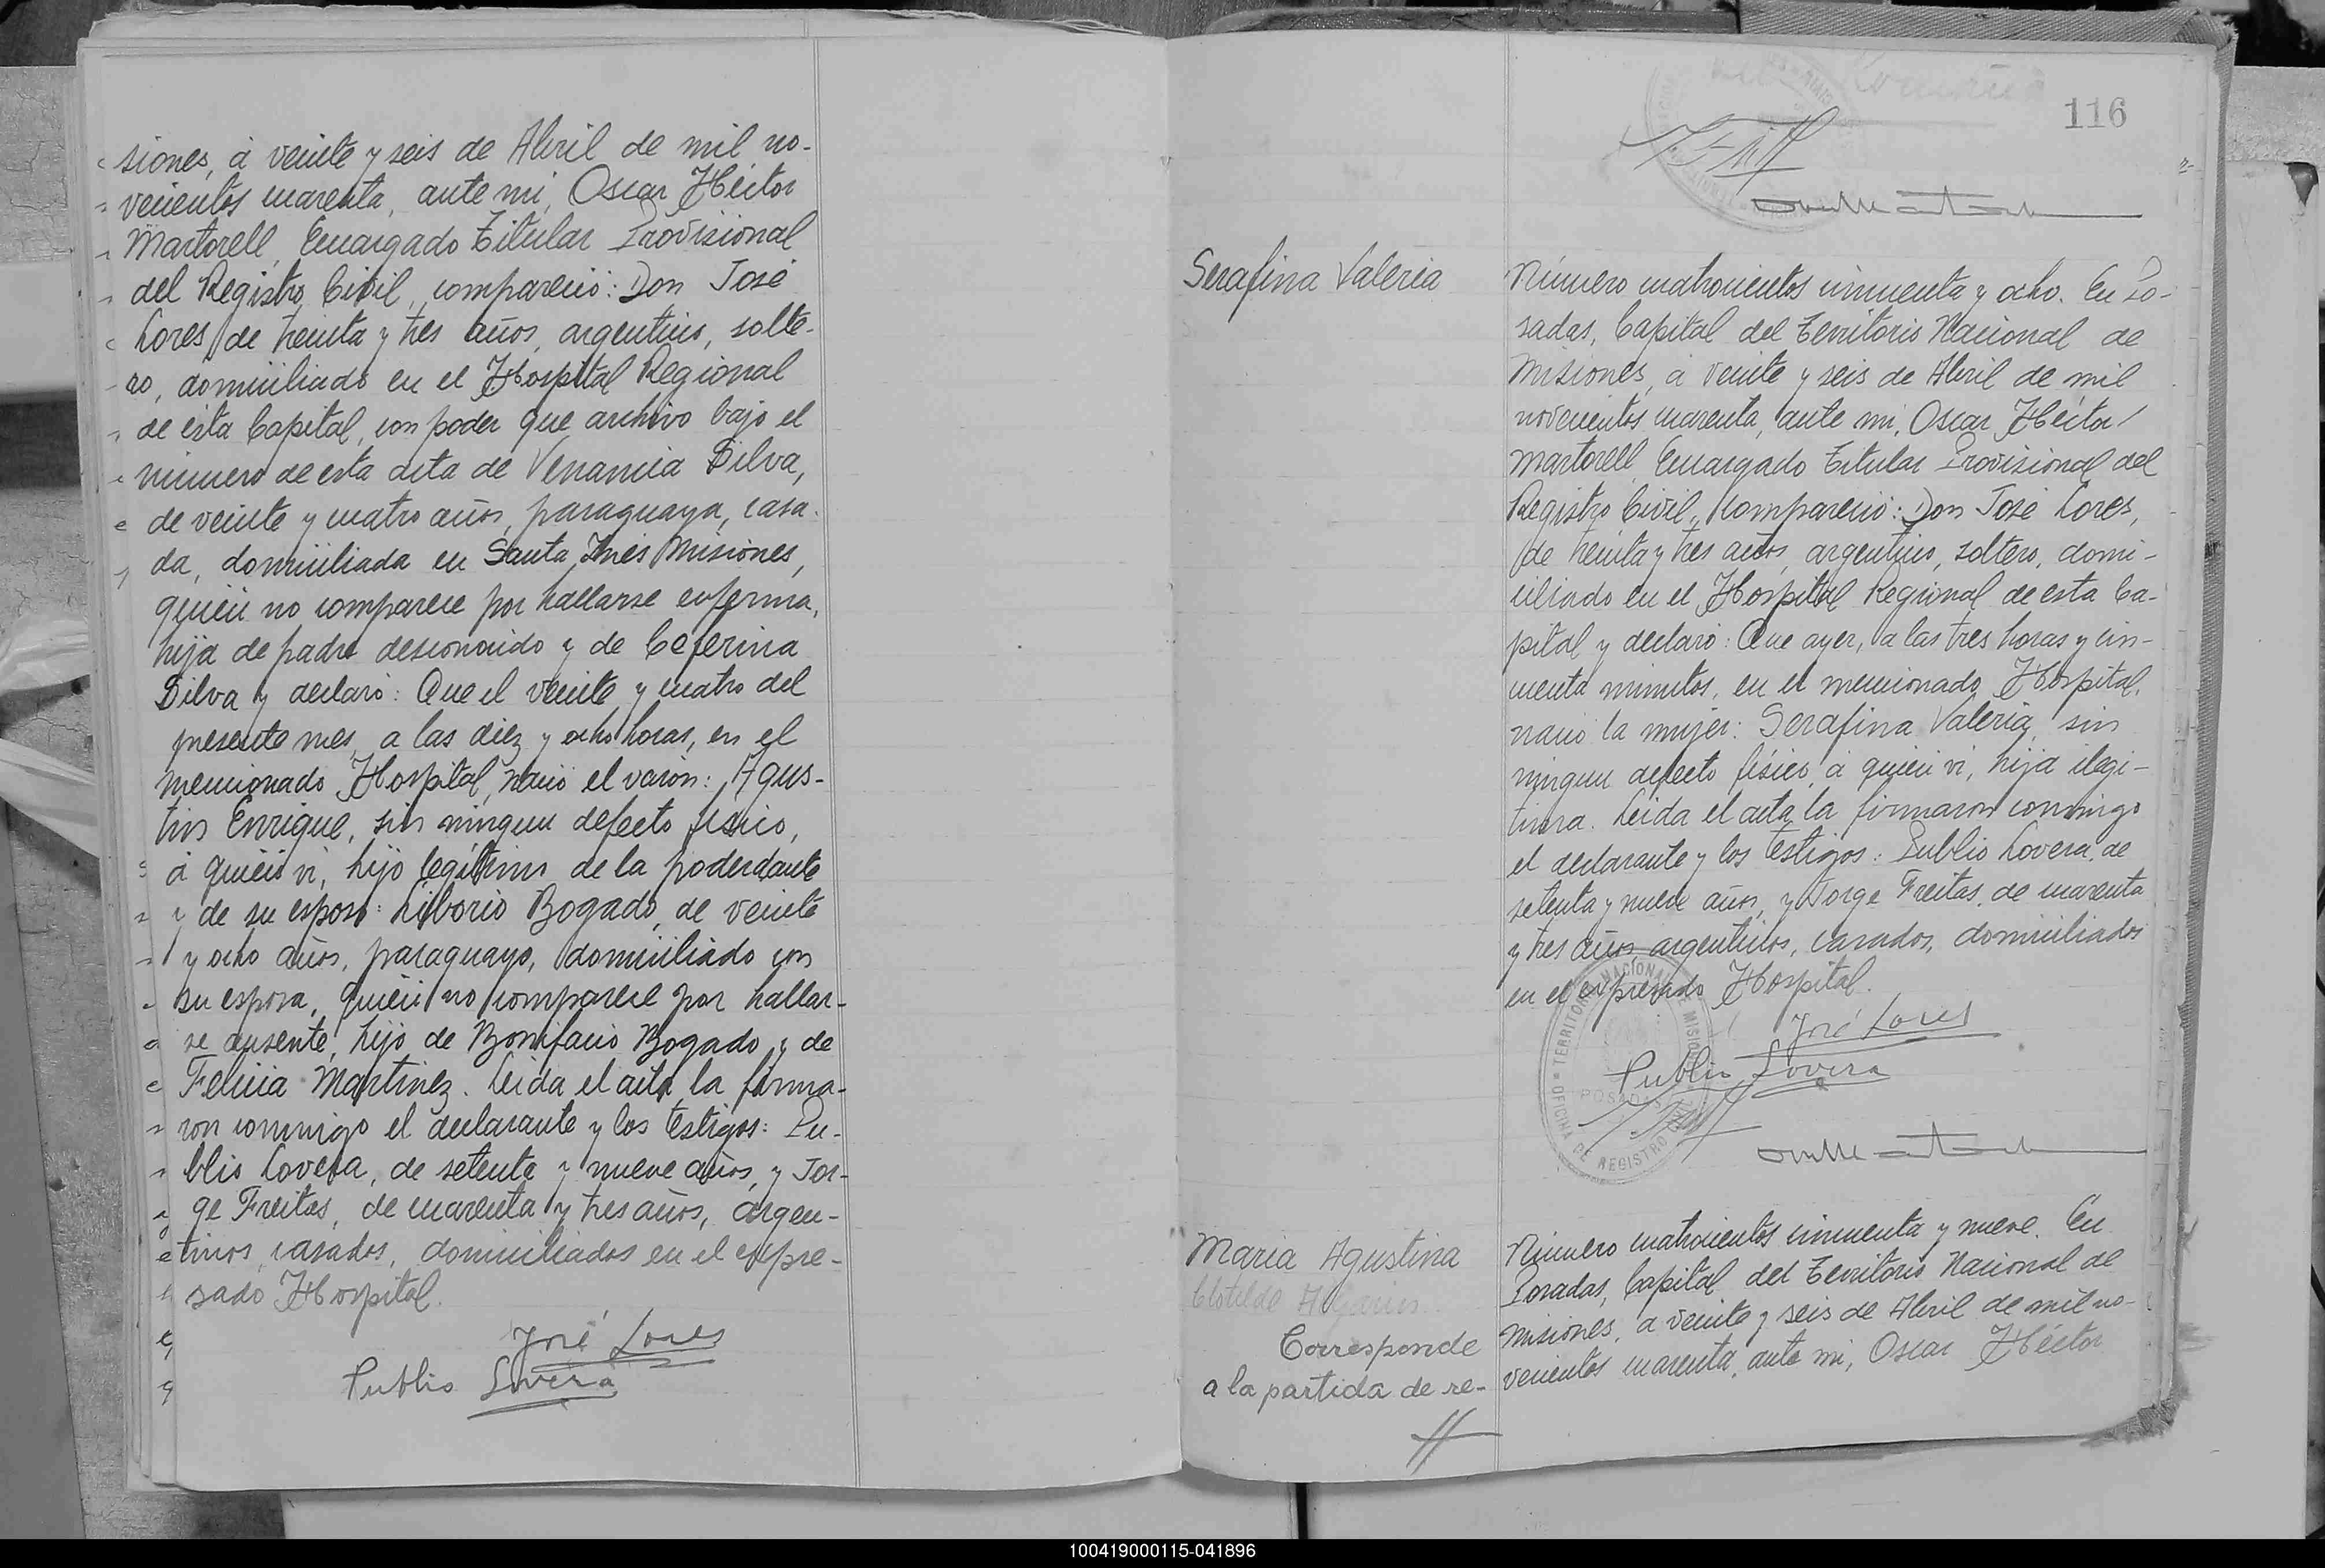 siones, á veinte y seis de Abril de mil no-
vecientos cuarenta, ante mi, Oscar Héctor
Martorell, Encargado Titular Provisional
del Registro Civil, compareció: Don José
Lores, de treinta y tres años, argentino, solte-
ro, domiciliado en el Hospital Regional
de ésta Capital, con poder que archivo bajo el
número de esta acta de Venancia Silva,
de veinte y cuatro años, paraguaya, casa-
da, domiciliada en Santa Inés Misiones,
quien no comparece por hallarse enferma,
hija de padre desconocido y de Ceferina
Silva y declaró: Que el veinte y cuatro del
presente mes, a las diez y ocho horas, en el
mencionado Hospital, nació el varón: Agus-
tin Enrique, sin ningun defecto fisico,
á quien vi, hijo legitimo de la poderdante
y de su esposo: Liborio Bogado, de veinte
y ocho años, paraguayo, domiciliado con
su esposa, quien no comparece por hallar-
se ausente, hijo de Bonifacio Bogado y de
Felicia Martinez. Leida el acta, la firma-
ron conmigo el declarante y los testigos: Pu-
blio Lovera, de setenta y nueve años, y Jor-
ge Freitas, de cuarenta y tres años, argen-
tinos, casados, domiciliados en el expre-
sado Hospital.
José Lores
Publio Lovera
116
Serafina Valeria
Número cuatrocientos cincuenta y ocho. En Po-
sadas, Capital del Territorio Nacional de
Misiones, á veinte y seis de Abril de mil
novecientos cuarenta, ante mi, Oscar Héctor
Martorell, Encargado Titular Provisional del
Registro Civil, compareció: Don José Lores,
de treinta y tres años, argentino, soltero, domi-
ciliado en el Hospital Regional de esta Ca-
pital y declaró: Que ayer, a las tres horas y cin-
cuenta minutos, en el mencionado Hospital,
nació la mujer: Serafina Valeria, sin
ningun defecto físico, á quien vi, hija ilegi-
tima. Leida el acta, la firmaron conmigo
el declarante y los testigos: Publio Lovera, de
setenta y nueve años, y Jorge Freitas, de cuarenta
y tres años, argentinos, casados, domiciliados
en el expresado Hospital.
José Lores
Publio Lovera
TERRITORIO NACIONAL DE MISIONES
POSADAS
OFICINA DE REGISTRO CIVIL
Maria Agustina
Clotilde
Corresponde
a la partida de re-
Número cuatrocientos cincuenta y nueve. En
Posadas, Capital del Territorio Nacional de
Misiones, a veinte y seis de Abril de mil no-
vecientos cuarenta, ante mi, Oscar Héctor
100419000115-041896